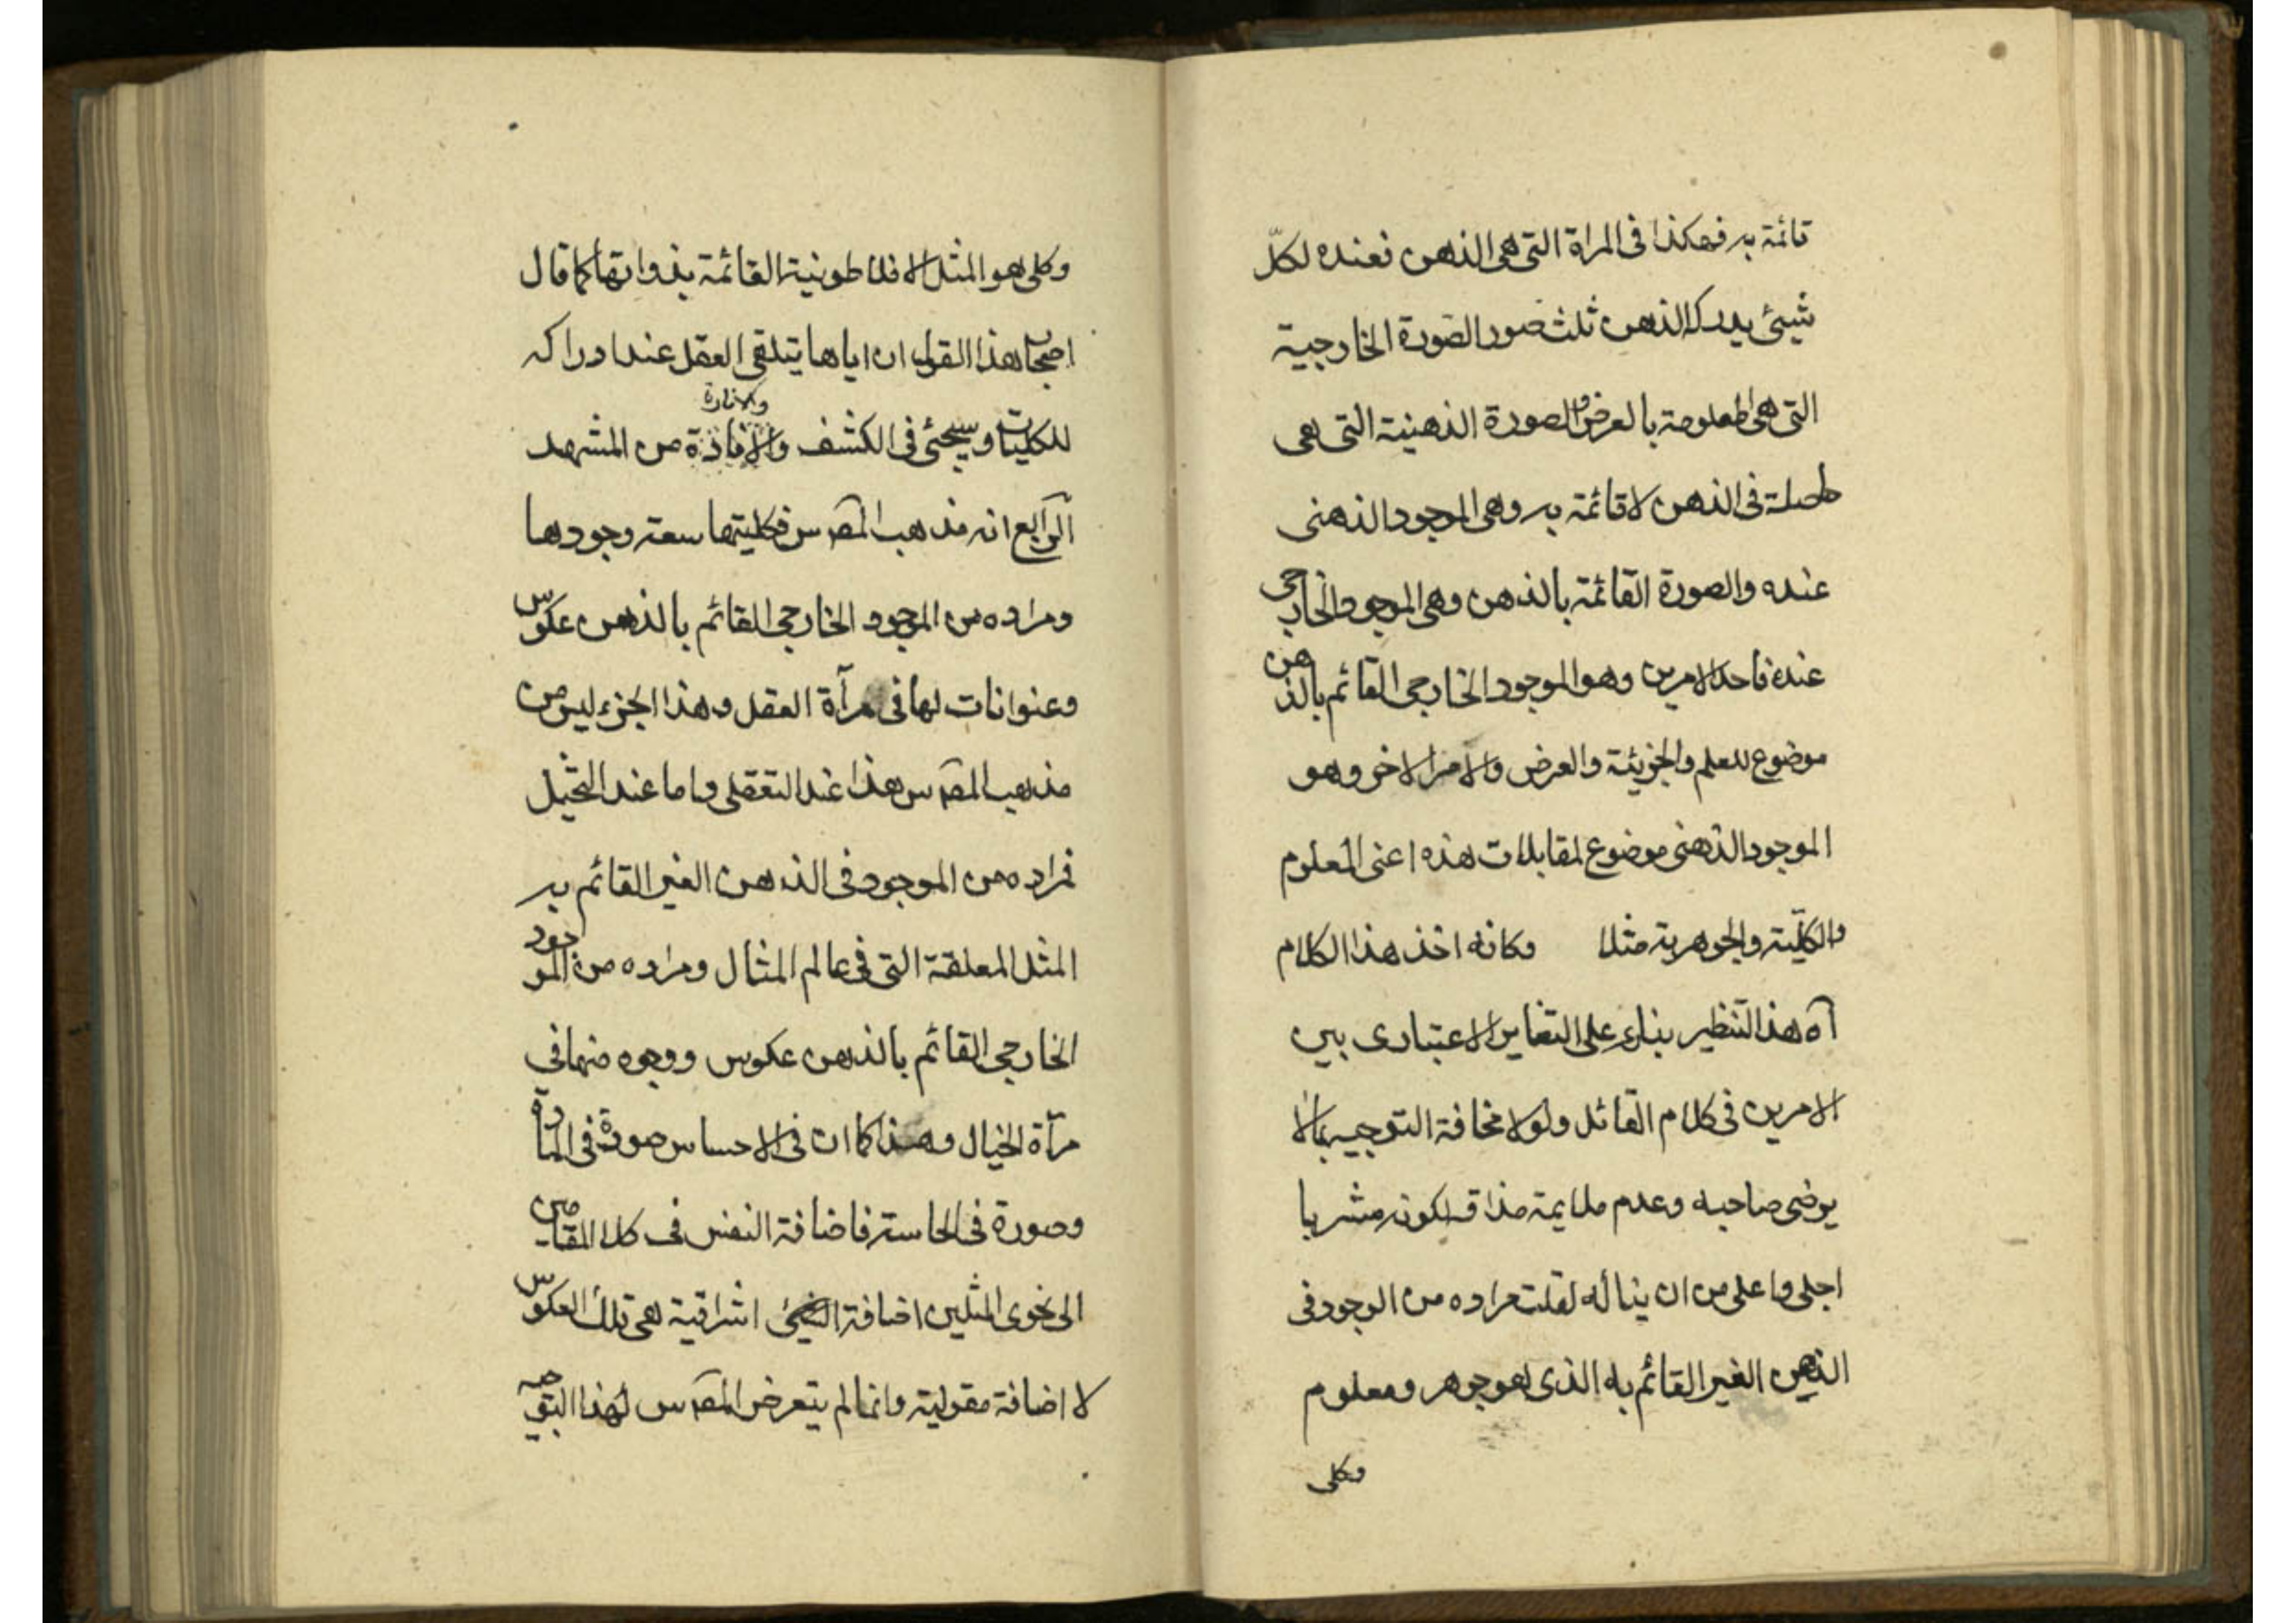 قائمة به فهكذا فى المراة التى هى الذهن فعنده لكلّ
شيئ يدركه الذهن ثلث صور الصورة الخارجية
التى هى المعلومة بالعرض و الصورة الذهنية التى هى
حاصلة فى الذهن لا قائمة به وهى الموجود الذهنى
عنده والصورة القائمة بالذهن وهى الموجود الخارجى
عنده فاحد الامرين وهو الموجود الخارجى القائم بالذهن
موضوع للعلم والجزئية والعرض والامر الاخر وهو
الموجود الذهنى موضوع لمقابلات هذه اعنى المعلوم
والكلّية والجوهرية مثلا وكانه اخذ هذا الكلام
آه هذا التنظير بناء على التغاير الاعتبارى بين
الامرين فى كلام القائل ولولا مخافة التوجيه بما لا
يرضى صاحبه وعدم ملايمة مذاقه لكونه مشربا
اجلى واعلى من ان يناله لقلت مراده من الوجود فى
الذهن الغير القائم به الذى هو جوهر ومعلوم
وكلى
وكلى هو المثل الافلاطونية القائمة بذواتها كما قال
اصحاب هذا القول ان اياها يتلقى العقل عند ادراكه
والانارة
للكليات وسيجئ فى الكشف والافادة من المشهد
الرابع انه مذهب المصـ س فكليتها سعة وجودها
ومراده من الموجود الخارجى القائم بالذهن عكوس
وعنوانات لها فى مرآة العقل وهذا الجزء ليس من
مذهب المصـ س هذا عند التعقل واما عند التخيل
فمراده من الموجود فى الذهن الغير القائم به
المثل المعلقة التى فى عالم المثال ومراده من الموجود
الخارجى القائم بالذهن عكوس ووجوه منها فى
مرآة الخيال وهذا كما ان فى الاحساس صورة فى المادة
وصورة فى الحاسة فاضافة النفس فى كلا المقامين
الى نحوى المثلين اضافة اشراقية هى تلك العكوس
لا اضافة مقولية وانما لم يتعرض المصـ س لهذا التوجيه